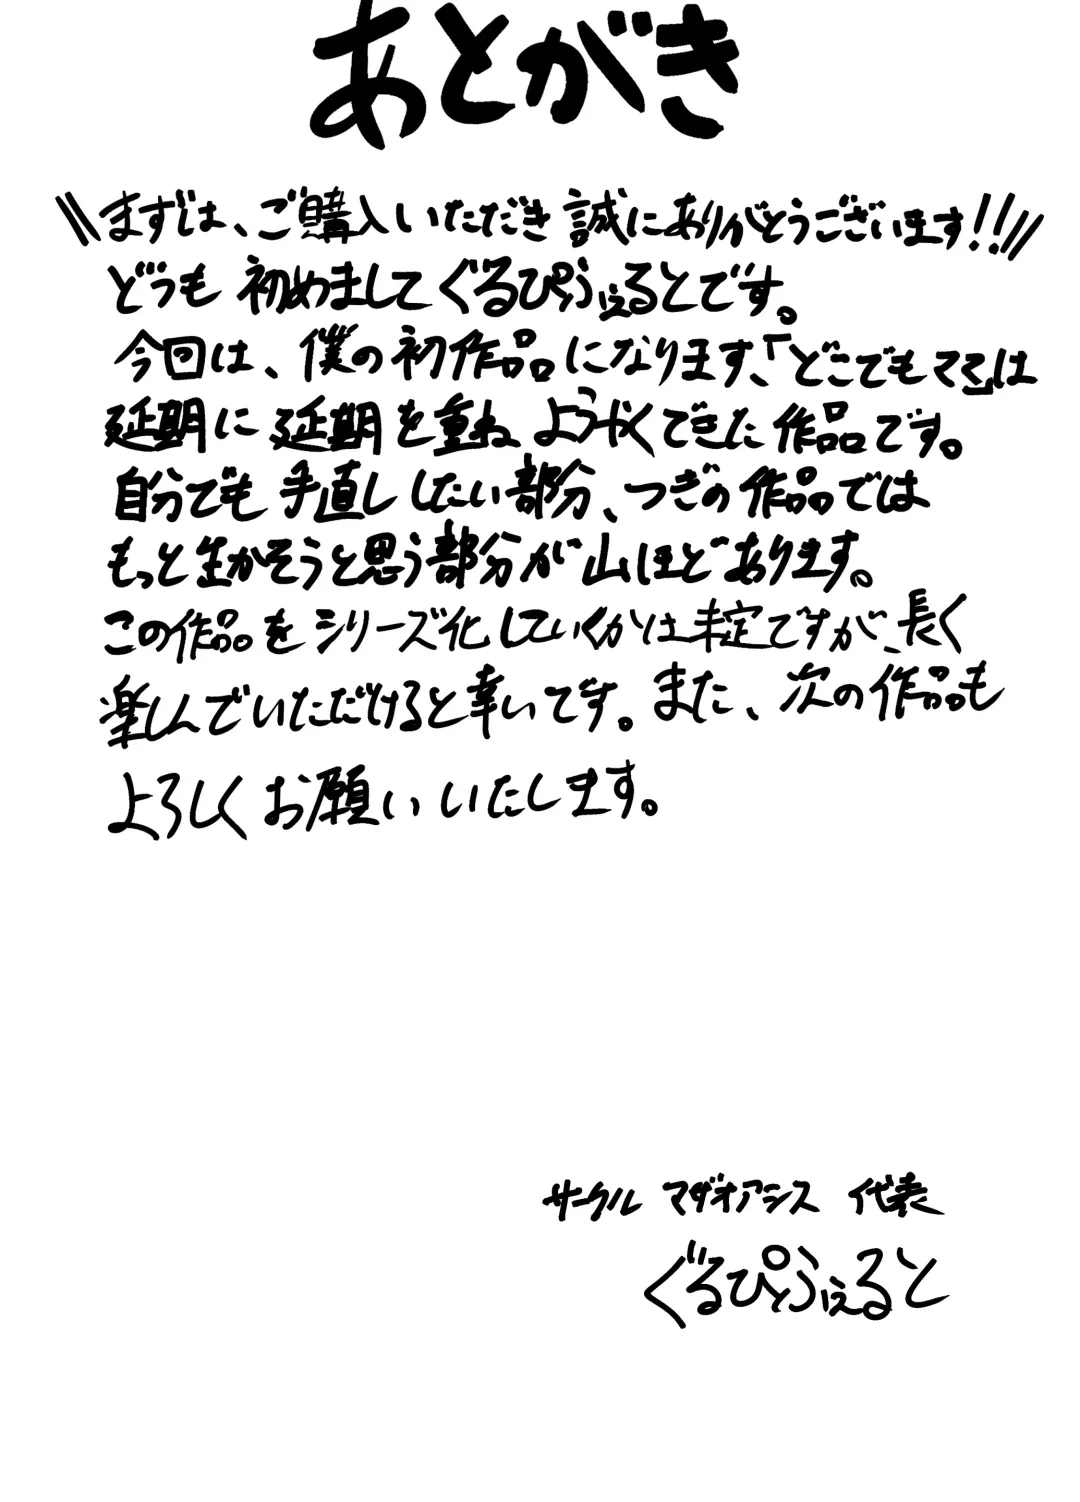 あとがき
\\まずは、ご購入いただき誠にありがとうございます!!//
どうも初めましてぐるぴょふぇるとです。
今回は、僕の初作品になります、「どこでもママ」は
延期に延期を重ねようやくできた作品です。
自分でも手直ししたい部分、つぎの作品では
もっと生かそうと思う部分が山ほどあります。
この作品をシリーズ化していくかは未定ですが、長く
楽しんでいただけると幸いです。また、次の作品も
よろしくお願いいたします。
サークル マダオアシス 代表
ぐるぴょふぇると